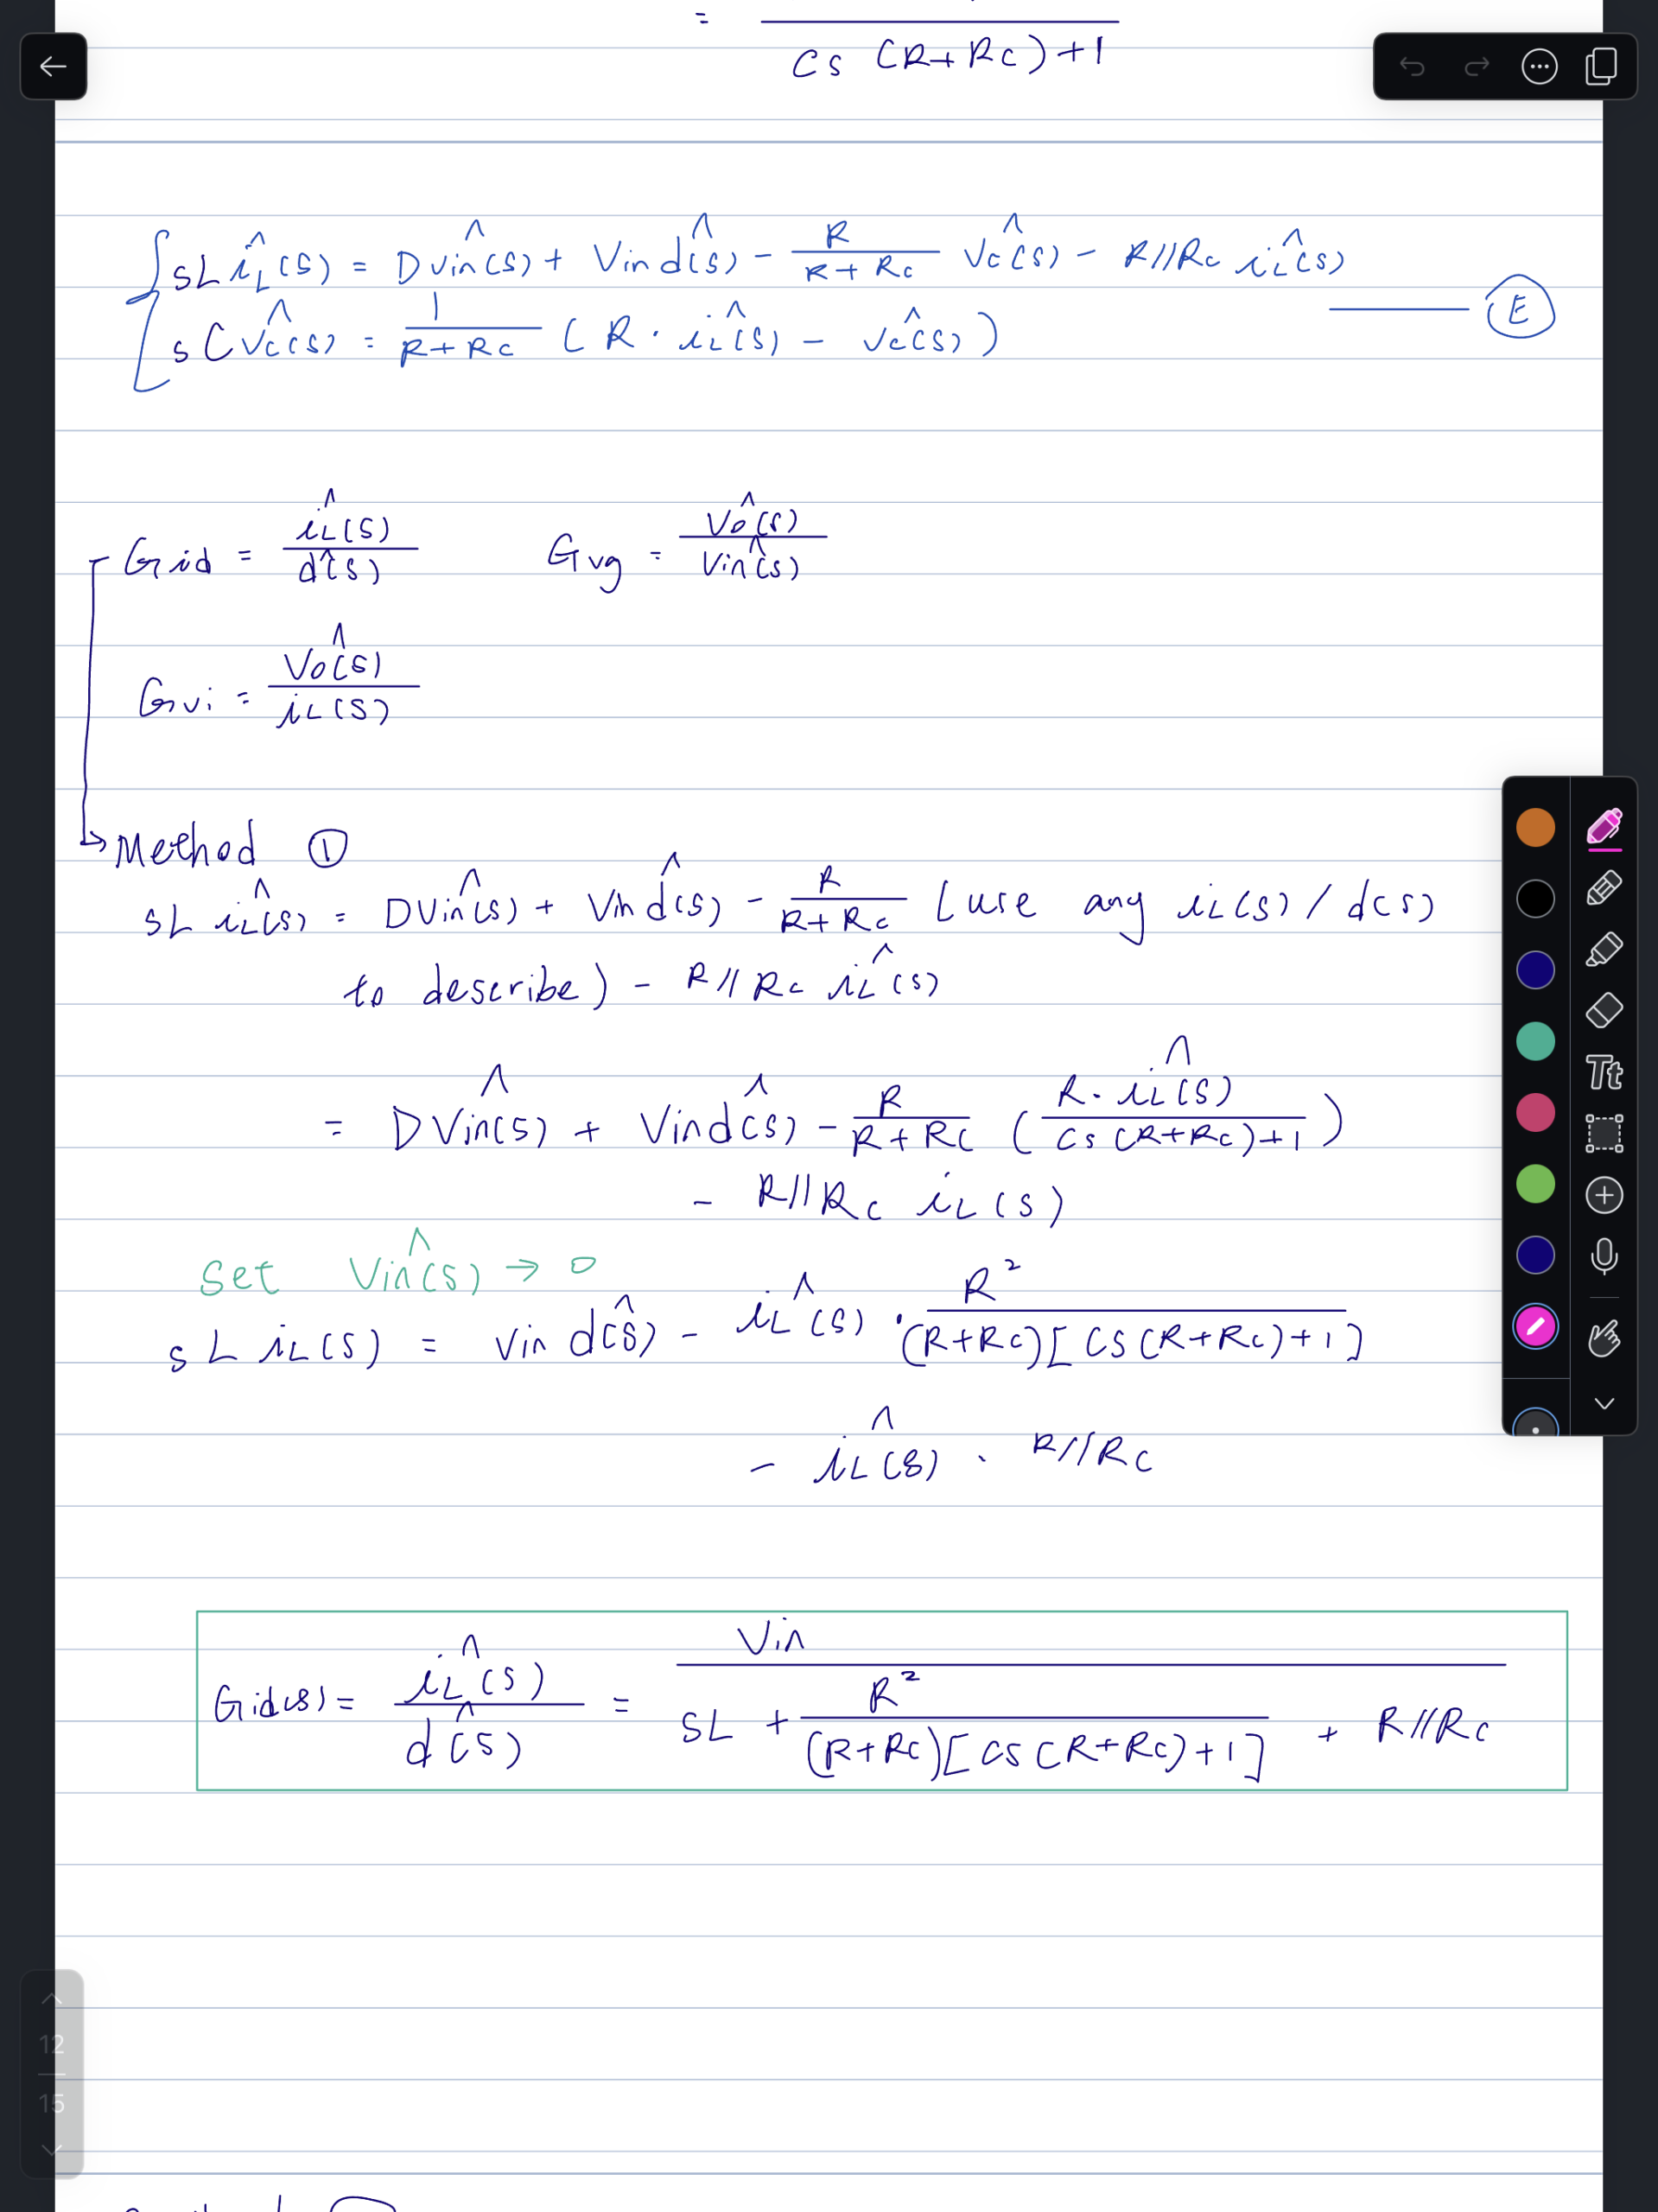 = / Cs (R+Rc)+1
sL îL(s) = D v̂in(s) + Vin d̂(s) - R/(R+Rc) v̂c(s) - R//Rc îL(s)
sC v̂c(s) = 1/(R+Rc) (R · îL(s) - v̂c(s)) —— Ⓔ
Gid = îL(s)/d̂(s) Gvg = V̂o(s)/V̂in(s)
Gvi = V̂o(s)/iL(s)
↳ Method ①
sL îL(s) = D V̂in(s) + Vin d̂(s) - R/(R+Rc) (use any iL(s)/d(s)
to describe) - R//Rc îL(s)
= D V̂in(s) + Vin d̂(s) - R/(R+Rc) (R·îL(s)/(Cs(R+Rc)+1))
- R//Rc iL(s)
Set V̂in(s) → 0
sL iL(s) = Vin d̂(s) - îL(s) · R²/((R+Rc)[Cs(R+Rc)+1])
- îL(s) · R//Rc
Gid(s) = îL(s)/d̂(s) = Vin/(SL + R²/((R+Rc)[Cs(R+Rc)+1]) + R//Rc)
Tt
12
15